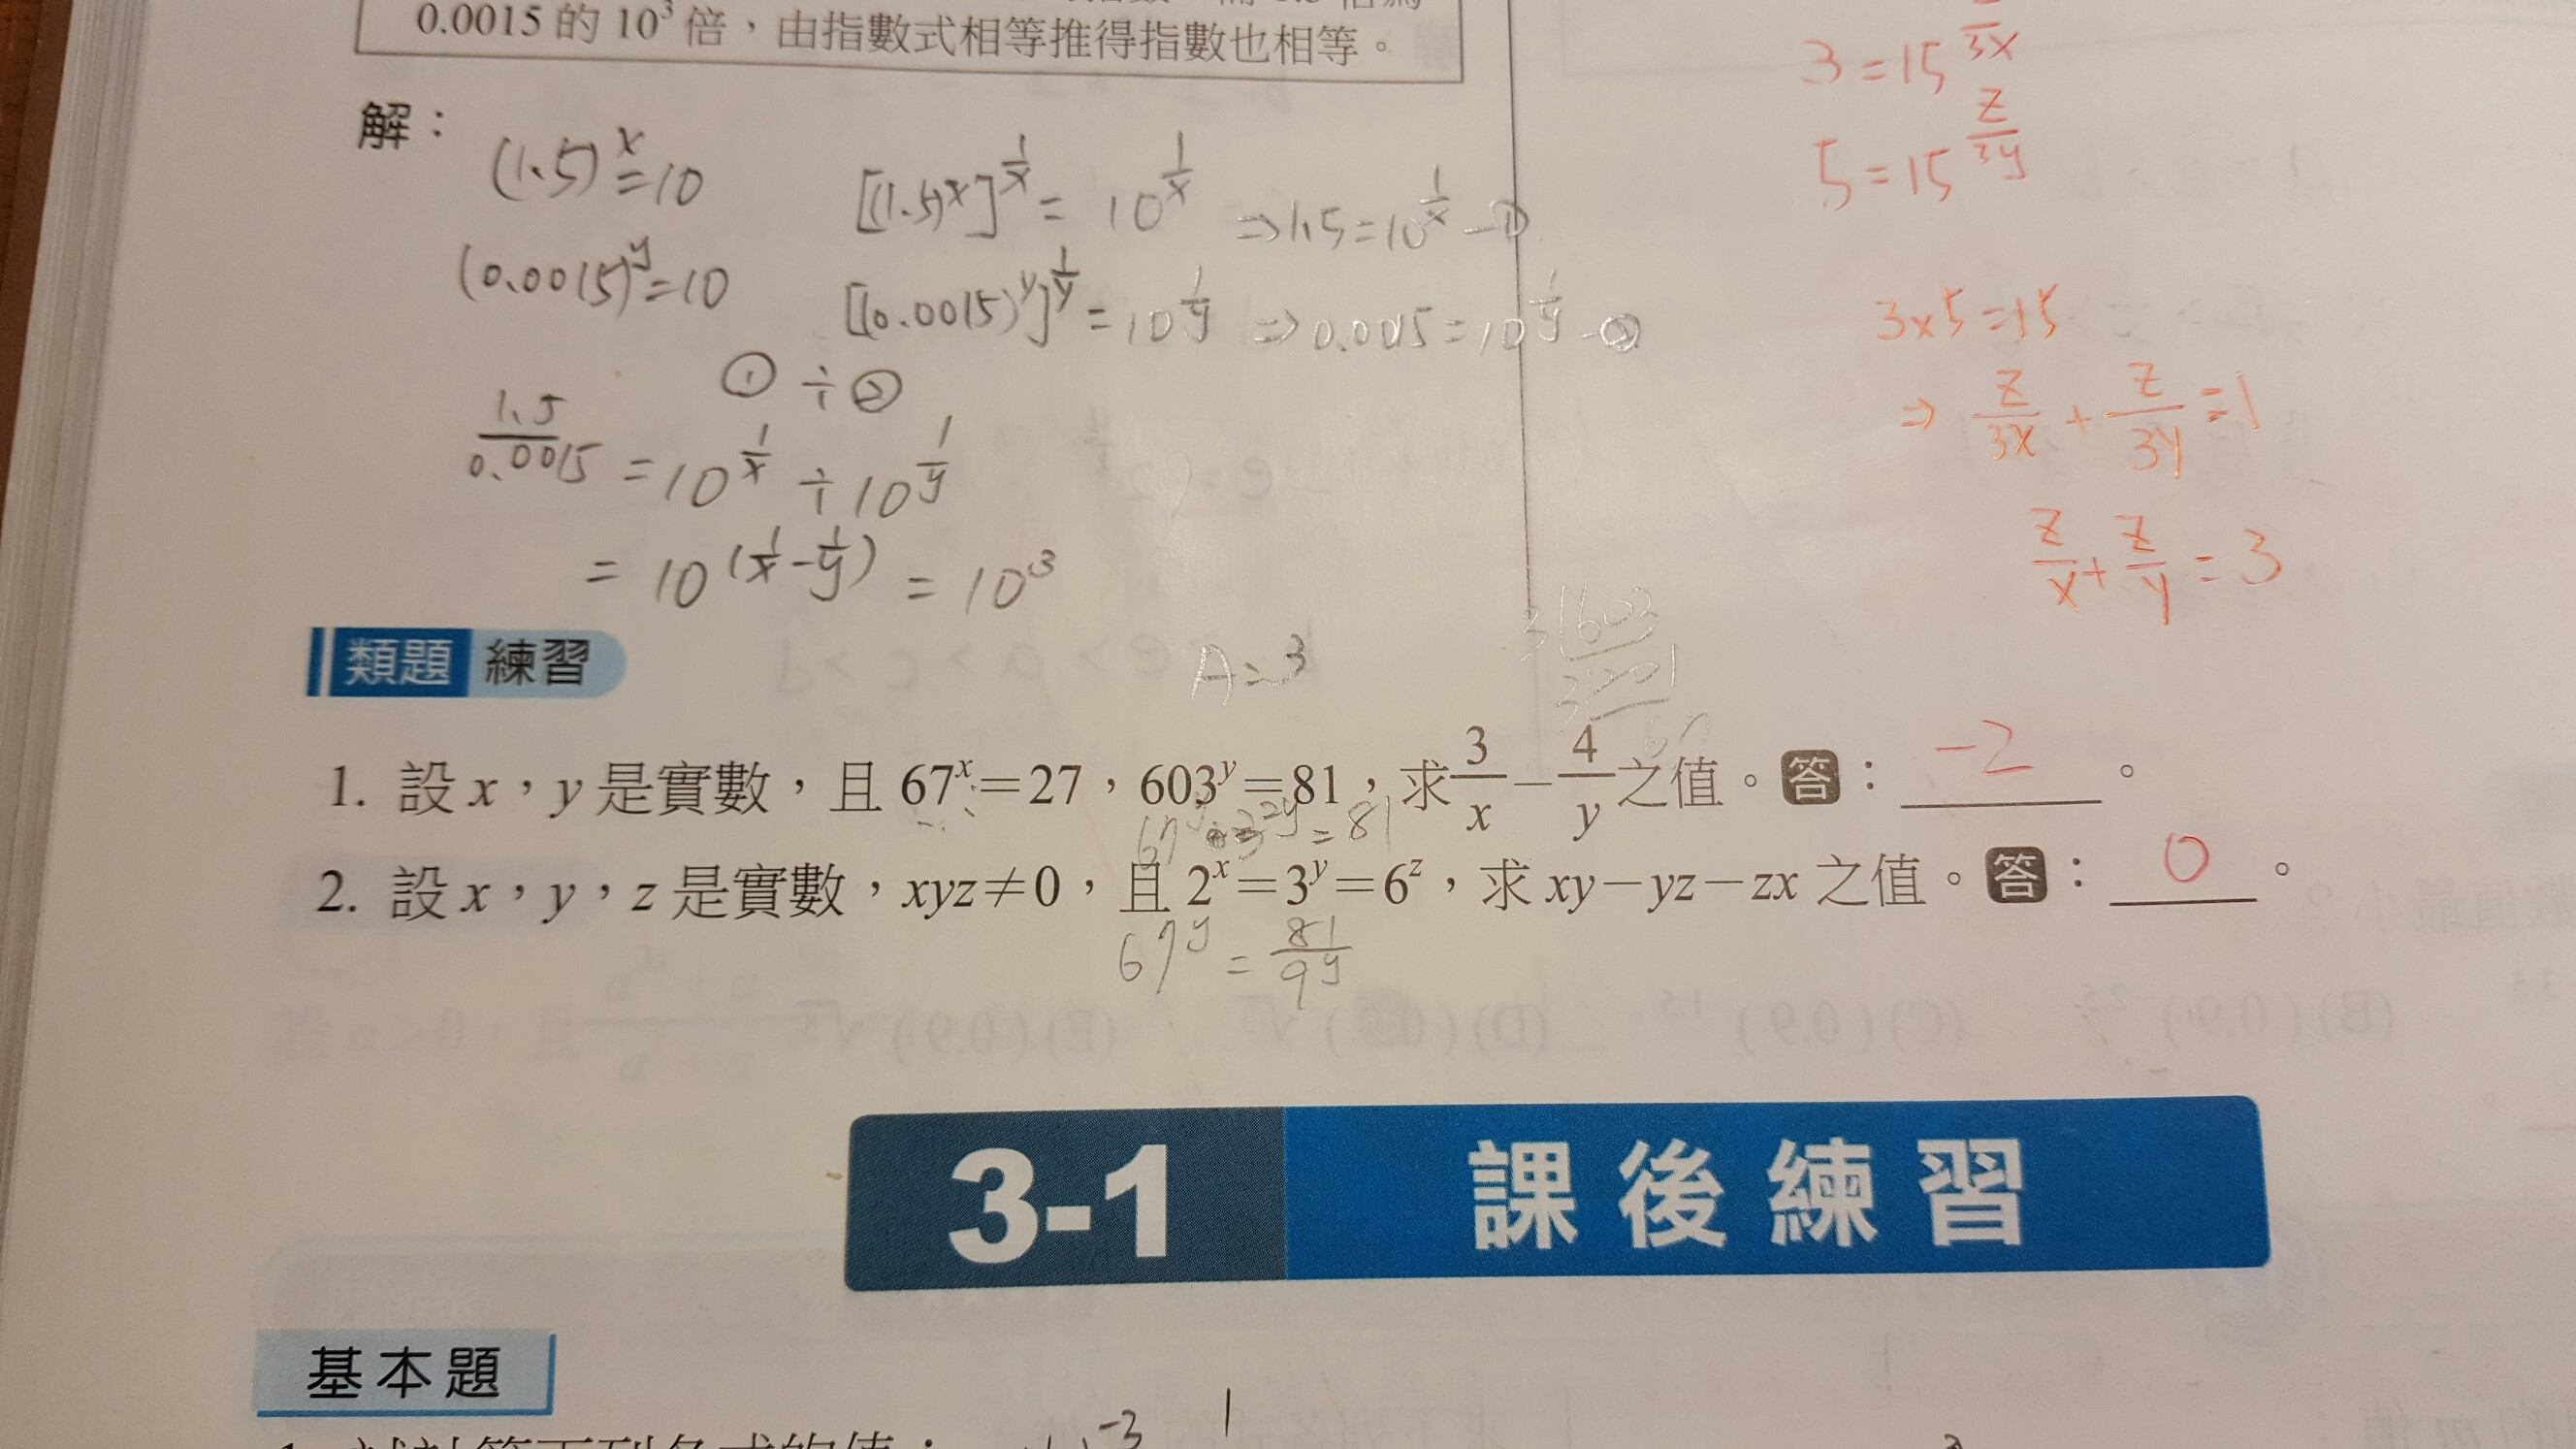 0.0015 的 10³ 倍，由指數式相等推得指數也相等。
解：
(1.5)^x = 10
[(1.5)^x]^{1/x} = 10^{1/x} ⇒ 1.5 = 10^{1/x} —①
(0.0015)^y = 10
[(0.0015)^y]^{1/y} = 10^{1/y} ⇒ 0.0015 = 10^{1/y} —②
① ÷ ②
1.5/0.0015 = 10^{1/x} ÷ 10^{1/y}
= 10^{(1/x - 1/y)} = 10³
A = 3
3 = 15^{z/3x}
5 = 15^{z/3y}
3×5 = 15
⇒ z/3x + z/3y = 1
z/x + z/y = 3
類題 練習
3 603
3 201
67
1. 設 x，y 是實數，且 67^x＝27，603^y＝81，求 3/x－4/y 之值。答：-2。
67^y · 3^{2y} = 81
2. 設 x，y，z 是實數，xyz≠0，且 2^x＝3^y＝6^z，求 xy－yz－zx 之值。答：0。
67^y = 81/9^y
3-1 課後練習
基本題